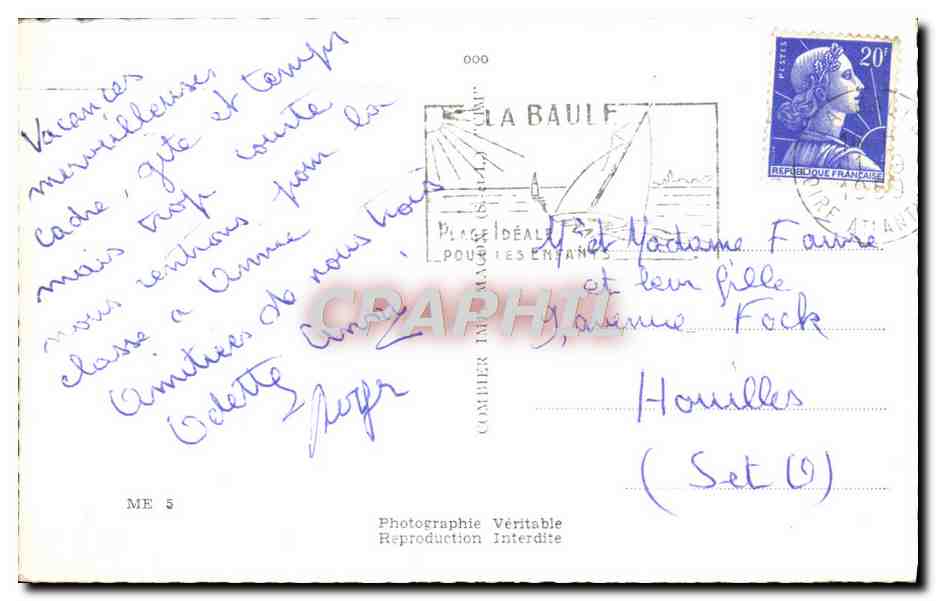 Vacances
merveilleuses
cadre, gîte et temps
mais trop courte
nous rentrons pour la
classe a Anne
Amitiées de nous trois
Odette Anny
Roger
ME 5
000
COMBIER IMP. MACON (S.-et-L.)
LA BAULE
PLAGE IDÉALE
POUR LES ENFANTS
POSTES
20F
REPUBLIQUE FRANÇAISE
LOIRE ATLANTI
Mr et Madame Faure
et leur fille
9, avenue Fock
Houilles
(Set O)
CPAPHIL
Photographie Véritable
Reproduction Interdite